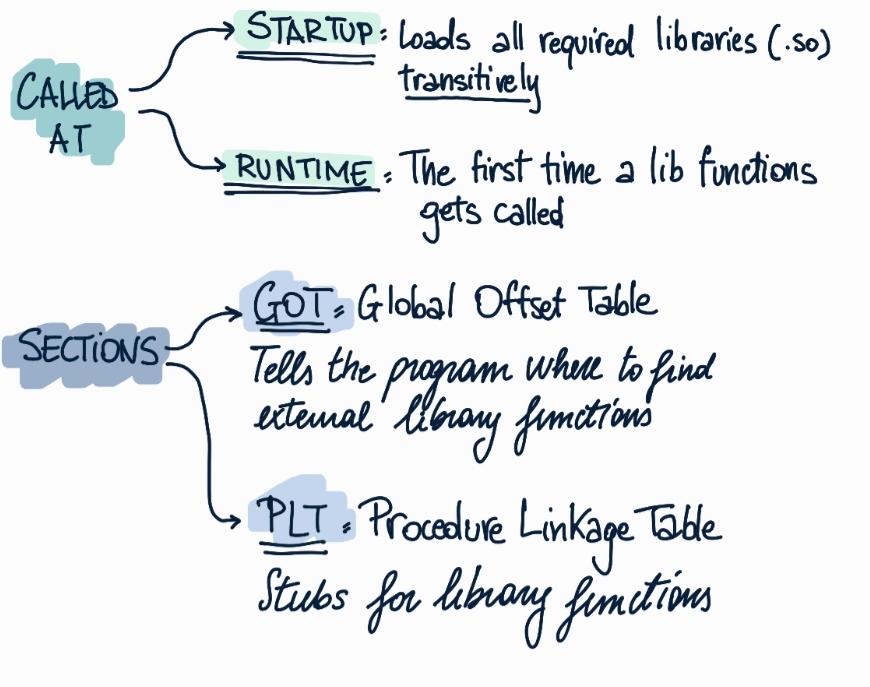 CALLED
AT
STARTUP: Loads all required libraries (.so)
transitively
RUNTIME: The first time a lib functions
gets called
SECTIONS
GOT: Global Offset Table
Tells the program where to find
external library functions
PLT: Procedure Linkage Table
Stubs for library functions